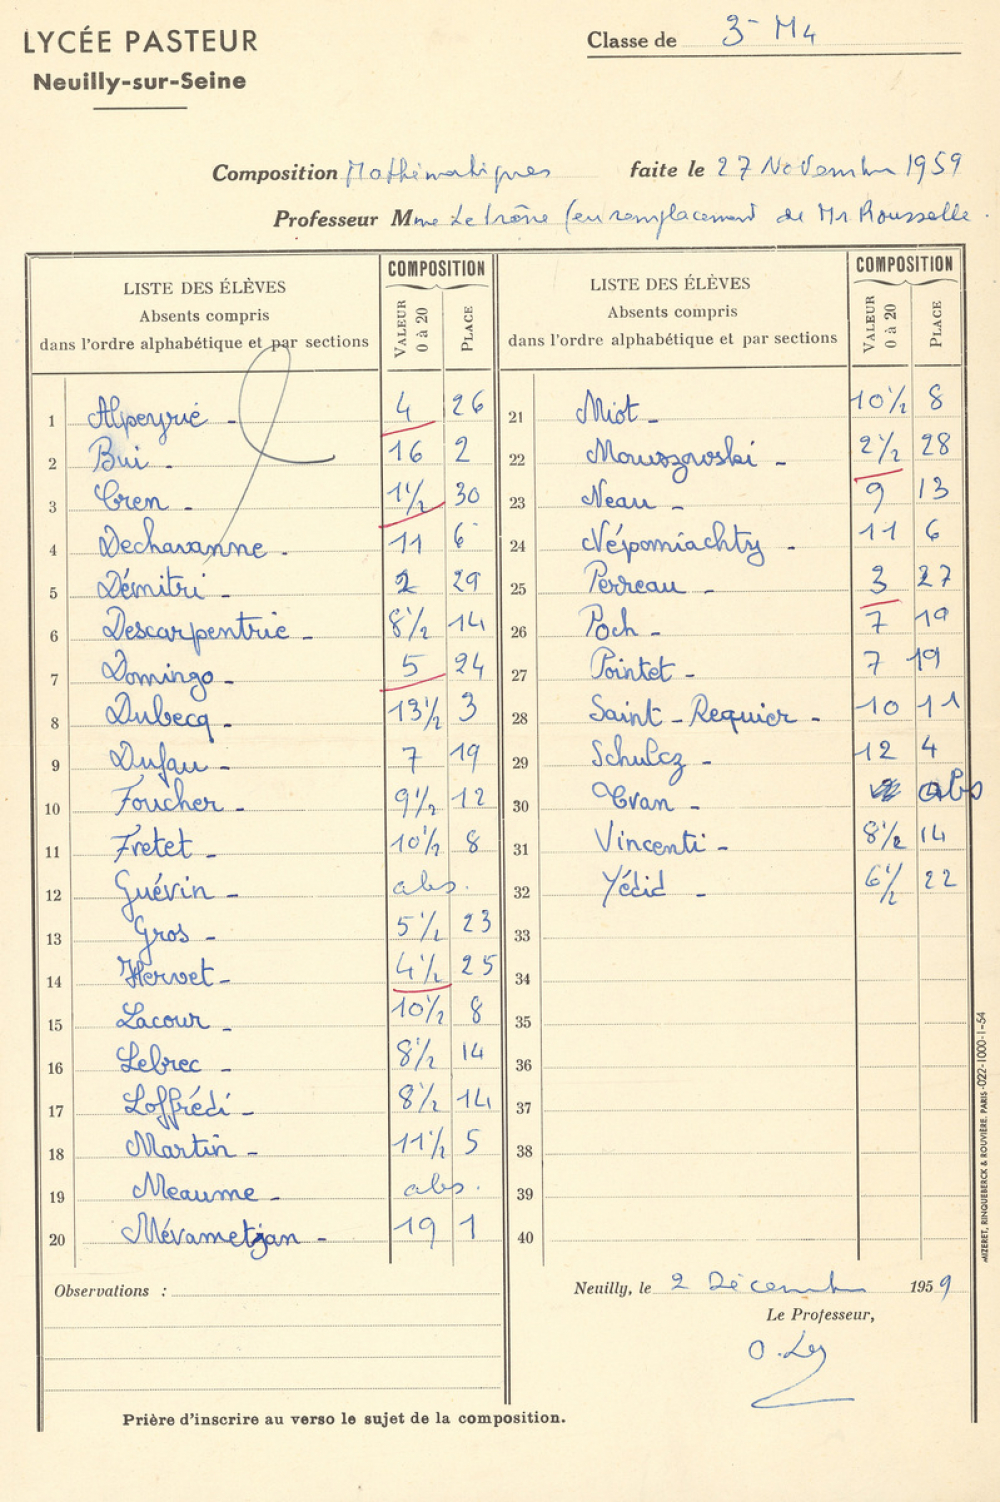 LYCÉE PASTEUR
Neuilly-sur-Seine
Classe de 3e M4
Composition Mathématiques faite le 27 Novembre 1959
Professeur Mme Letrône (en remplacement de Mr Rousselle.
LISTE DES ÉLÈVES
Absents compris
dans l'ordre alphabétique et par sections
COMPOSITION
VALEUR 0 à 20
PLACE
1 Alpeyrié - 4 26
2 Bui - 16 2
3 Cren - 1 1/2 30
4 Dechavanne - 11 6
5 Démitri - 2 29
6 Descarpentrie - 8 1/2 14
7 Domingo - 5 24
8 Dubecq - 13 1/2 3
9 Dufau - 7 19
10 Foucher - 9 1/2 12
11 Fretet - 10 1/2 8
12 Guévin - abs.
13 Gros - 5 1/2 23
14 Hervet - 4 1/2 25
15 Lacour - 10 1/2 8
16 Lebrec - 8 1/2 14
17 Loffrédi - 8 1/2 14
18 Martin - 11 1/2 5
19 Meaume - abs.
20 Mévametjan - 19 1
Observations :
Prière d'inscrire au verso le sujet de la composition.
LISTE DES ÉLÈVES
Absents compris
dans l'ordre alphabétique et par sections
COMPOSITION
VALEUR 0 à 20
PLACE
21 Miot - 10 1/2 8
22 Moruszowski - 2 1/2 28
23 Neau - 9 13
24 Népomiachty - 11 6
25 Perreau - 3 27
26 Poch - 7 19
27 Pointet - 7 19
28 Saint-Requier - 10 11
29 Schulcz - 12 4
30 Tran - abs
31 Vincenti - 8 1/2 14
32 Yédid - 6 1/2 22
33
34
35
36
37
38
39
40
Neuilly, le 2 Décembre 1959
Le Professeur,
MIZERET, RINQUEBERCK & ROUVIÈRE. PARIS-022-1000-1-54